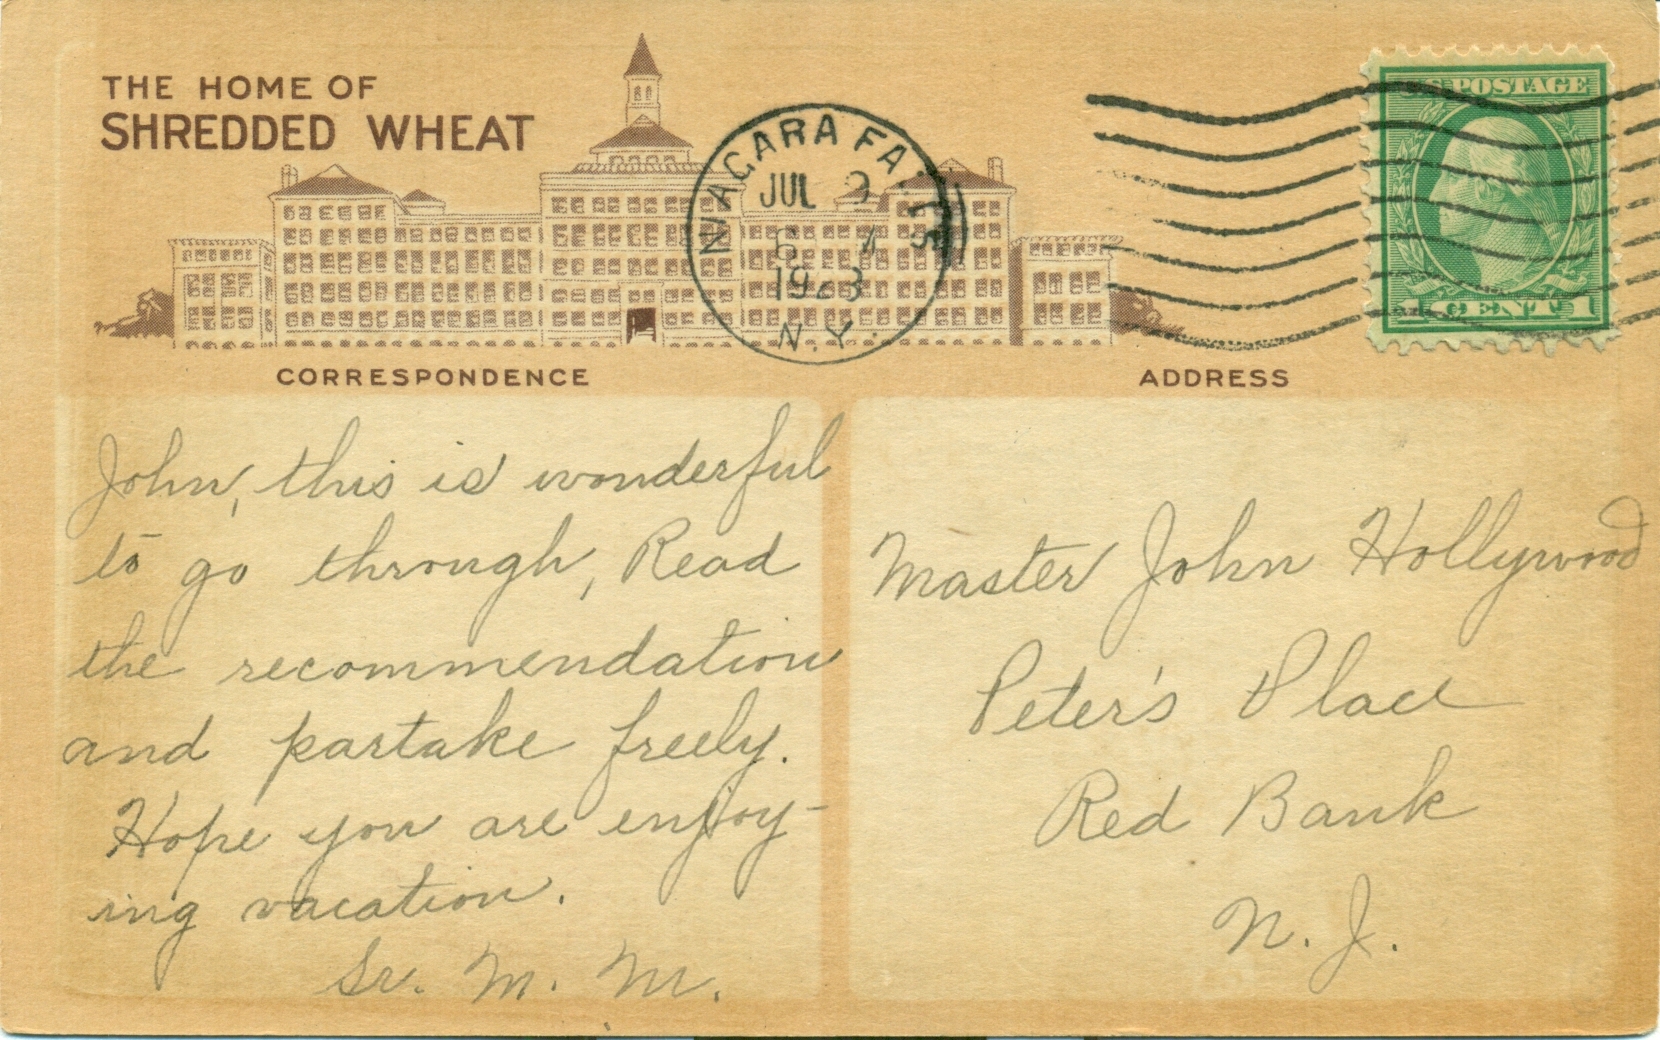 THE HOME OF
SHREDDED WHEAT
NIAGARA FALLS
JUL 9
6
1923
N.Y.
U.S. POSTAGE
1 CENT 1
CORRESPONDENCE
ADDRESS
John, this is wonderful
to go through, Read
the recommendation
and partake freely.
Hope you are enjoy-
ing vacation.
Sr. M. M.
Master John Hollywood
Peter's Place
Red Bank
N. J.